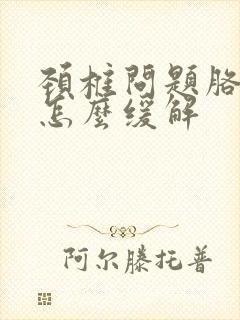 頚椎問題胳
怎麼缓解
阿尔滕托普